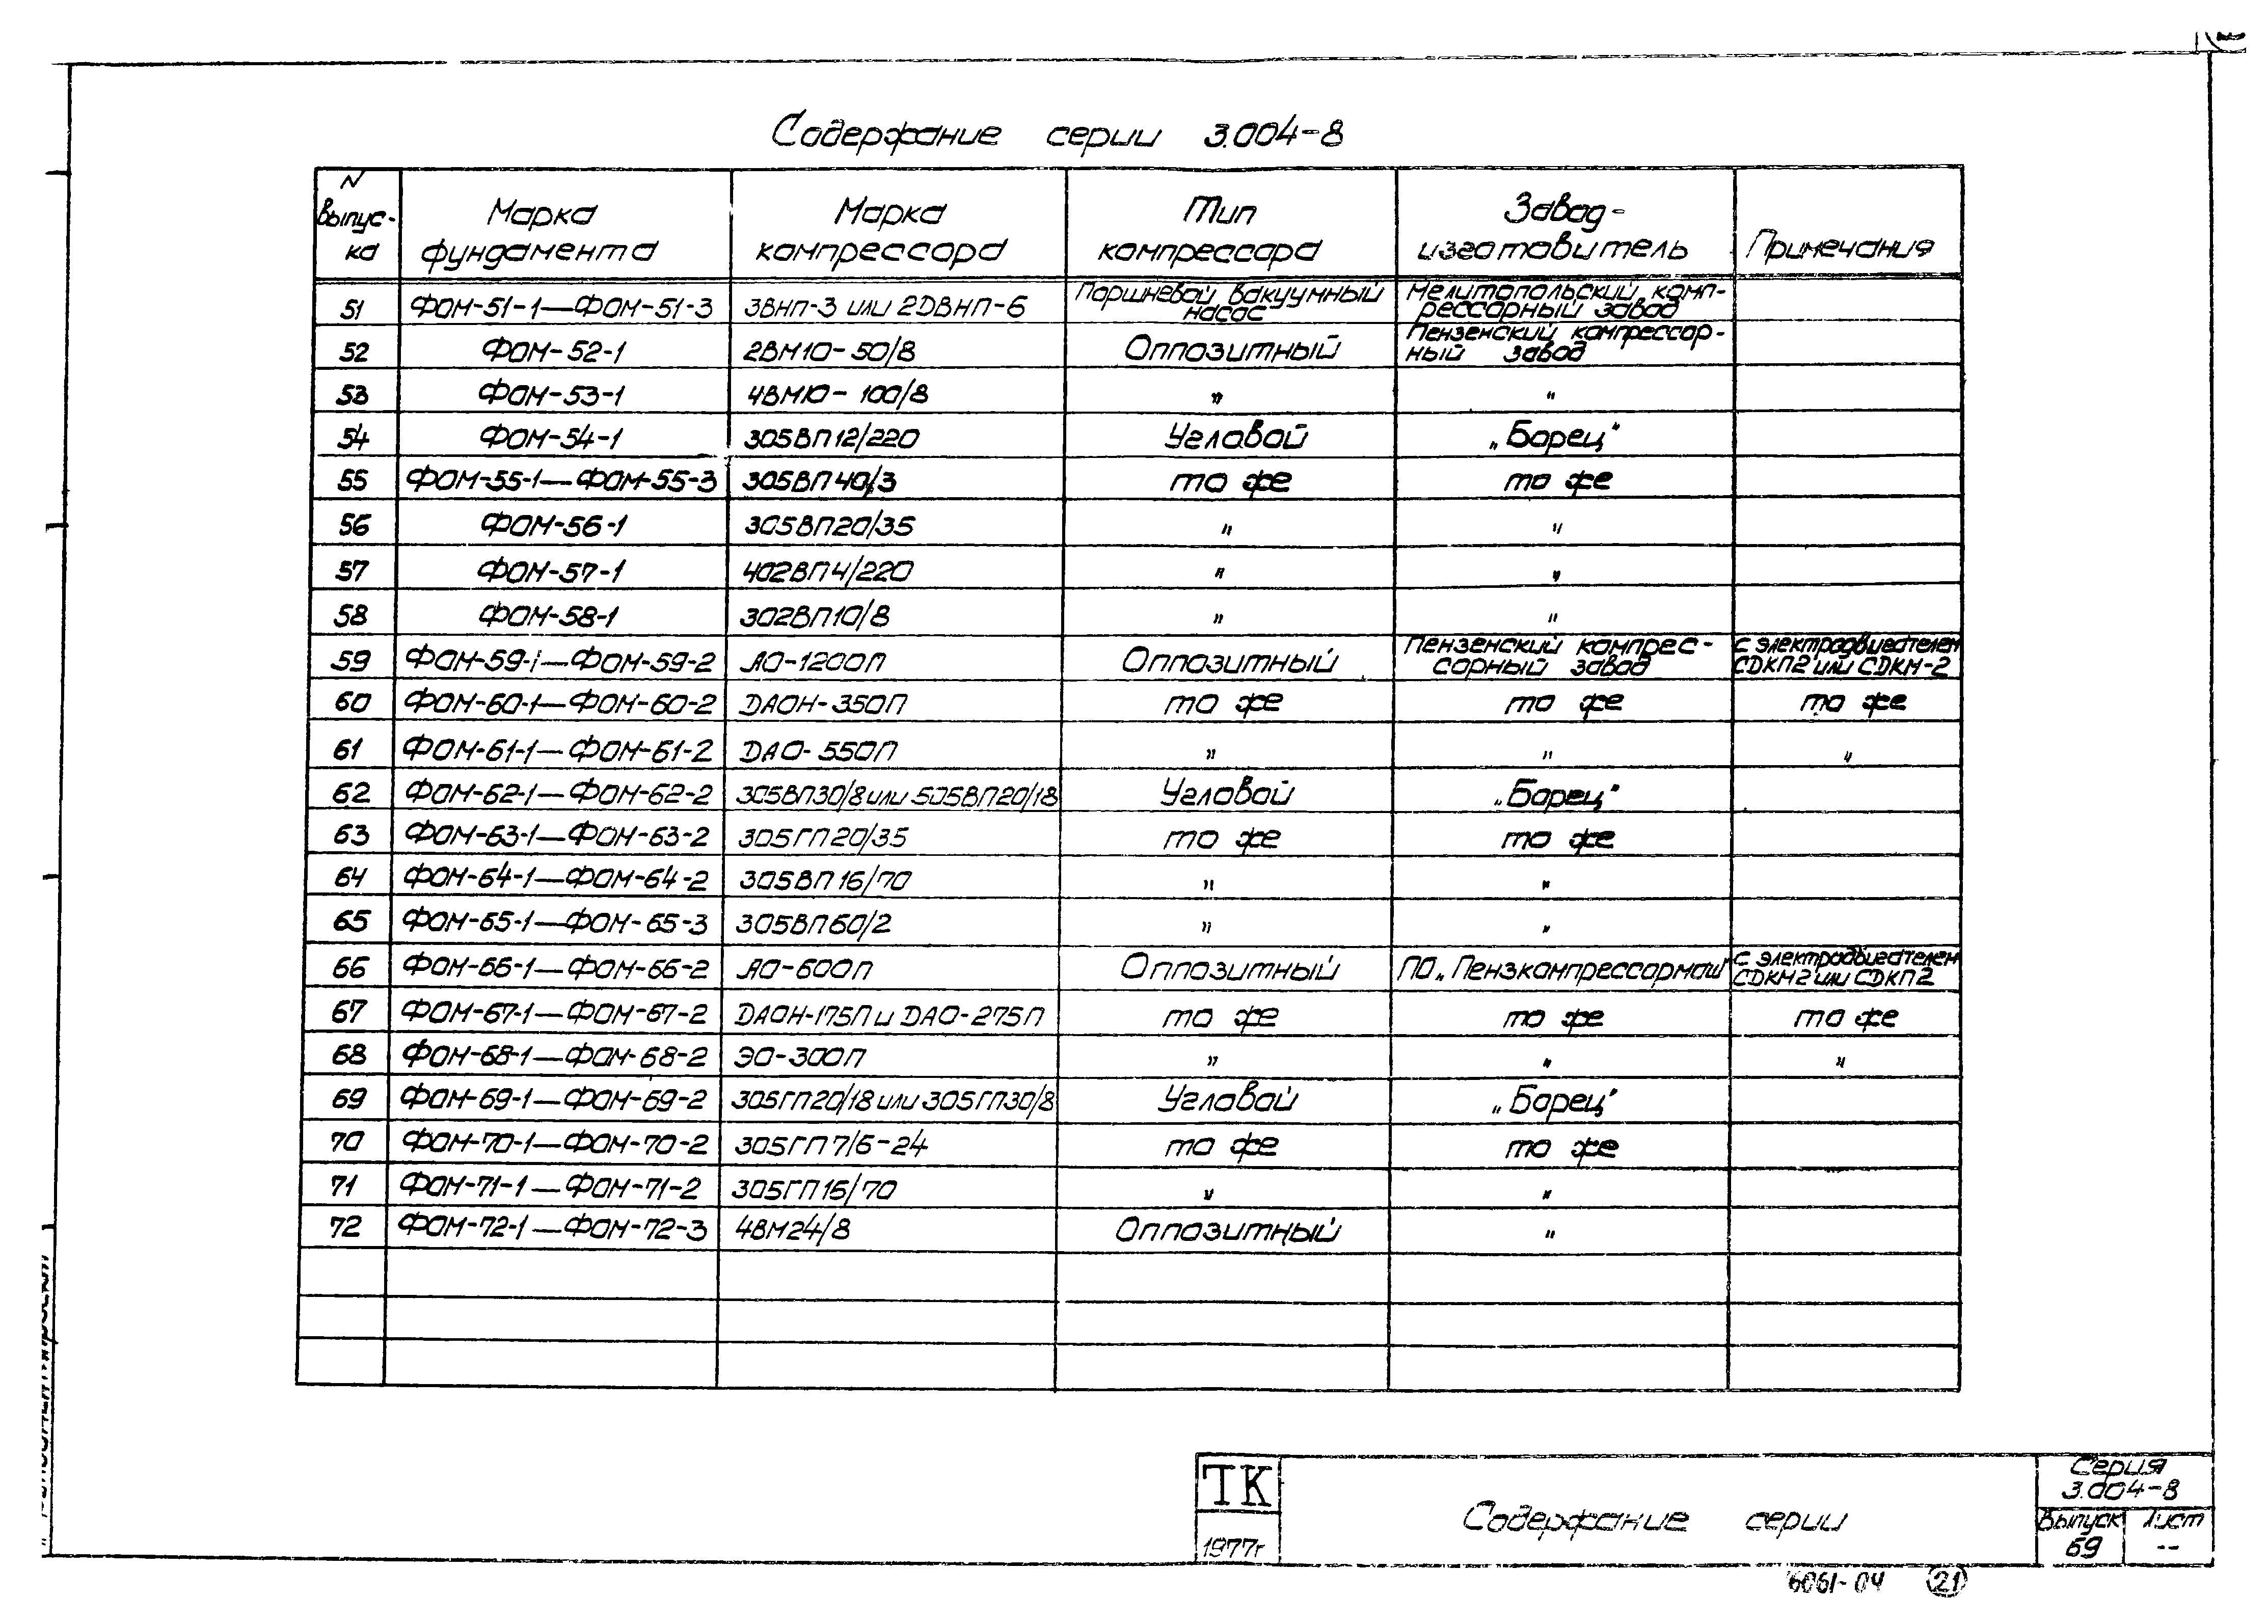 Содержание серии 3.004-8
N выпус-ка | Марка фундамента | Марка компрессора | Тип компрессора | Завод-изготовитель | Примечания
51 | ФОМ-51-1—ФОМ-51-3 | 3ВНП-3 или 2ДВНП-6 | Поршневой вакуумный насос | Мелитопольский комп-рессорный завод
52 | ФОМ-52-1 | 2ВМ10-50/8 | Оппозитный | Пензенский компрессор-ный завод
53 | ФОМ-53-1 | 4ВМ10-100/8 | " | "
54 | ФОМ-54-1 | 305ВП12/220 | Угловой | „Борец"
55 | ФОМ-55-1—ФОМ-55-3 | 305ВП40/3 | то же | то же
56 | ФОМ-56-1 | 305ВП20/35 | " | "
57 | ФОМ-57-1 | 402ВП4/220 | " | "
58 | ФОМ-58-1 | 302ВП10/8 | " | "
59 | ФОМ-59-1—ФОМ-59-2 | АО-1200П | Оппозитный | Пензенский компрес-сорный завод | с электродвигателем СДКП2 или СДКМ-2
60 | ФОМ-60-1—ФОМ-60-2 | ДАОН-350П | то же | то же | то же
61 | ФОМ-61-1—ФОМ-61-2 | ДАО-550П | " | " | "
62 | ФОМ-62-1—ФОМ-62-2 | 305ВП30/8 или 505ВП20/18 | Угловой | „Борец"
63 | ФОМ-63-1—ФОМ-63-2 | 305ГП20/35 | то же | то же
64 | ФОМ-64-1—ФОМ-64-2 | 305ВП16/70 | " | "
65 | ФОМ-65-1—ФОМ-65-3 | 305ВП60/2 | " | "
66 | ФОМ-66-1—ФОМ-66-2 | АО-600П | Оппозитный | ПО „Пензкомпрессормаш" | с электродвигателем СДКМ2 или СДКП2
67 | ФОМ-67-1—ФОМ-67-2 | ДАОН-175П и ДАО-275П | то же | то же | то же
68 | ФОМ-68-1—ФОМ-68-2 | ЭО-300П | " | " | "
69 | ФОМ-69-1—ФОМ-69-2 | 305ГП20/18 или 305ГП30/8 | Угловой | „Борец"
70 | ФОМ-70-1—ФОМ-70-2 | 305ГП7/6-24 | то же | то же
71 | ФОМ-71-1—ФОМ-71-2 | 305ГП16/70 | " | "
72 | ФОМ-72-1—ФОМ-72-3 | 4ВМ24/8 | Оппозитный | "
ТК
1977г
Содержание серии
Серия
3.004-8
Выпуск Лист
69 --
6061-04 21